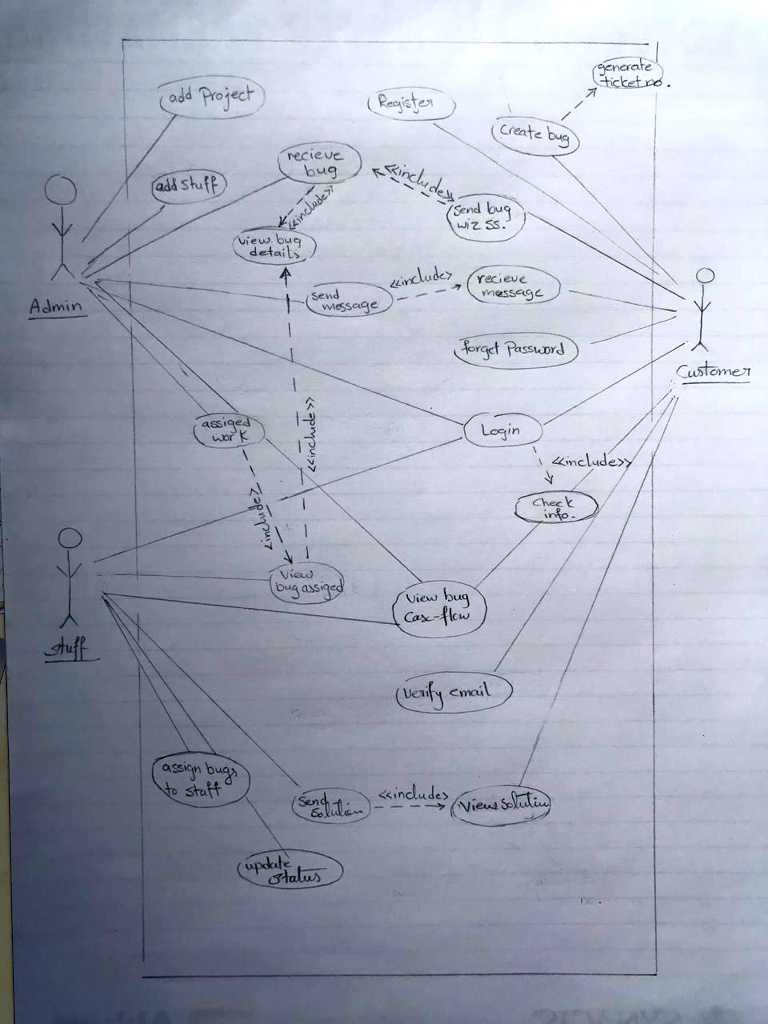 generate
ticket no.
add Project
Register
Create bug
recieve
bug
<<include>>
add stuff
<<include>>
Send bug
wiz SS.
view bug
details
<<include>>
recieve
message
send
message
Admin
forget Password
Customer
assiged
work
Login
<<include>>
<<include>>
<<include>>
Check
info.
View
bug assiged
View bug
Case-flow
stuff
Verify email
assign bugs
to staff
Send
Solution
<<include>>
View Solution
update
status